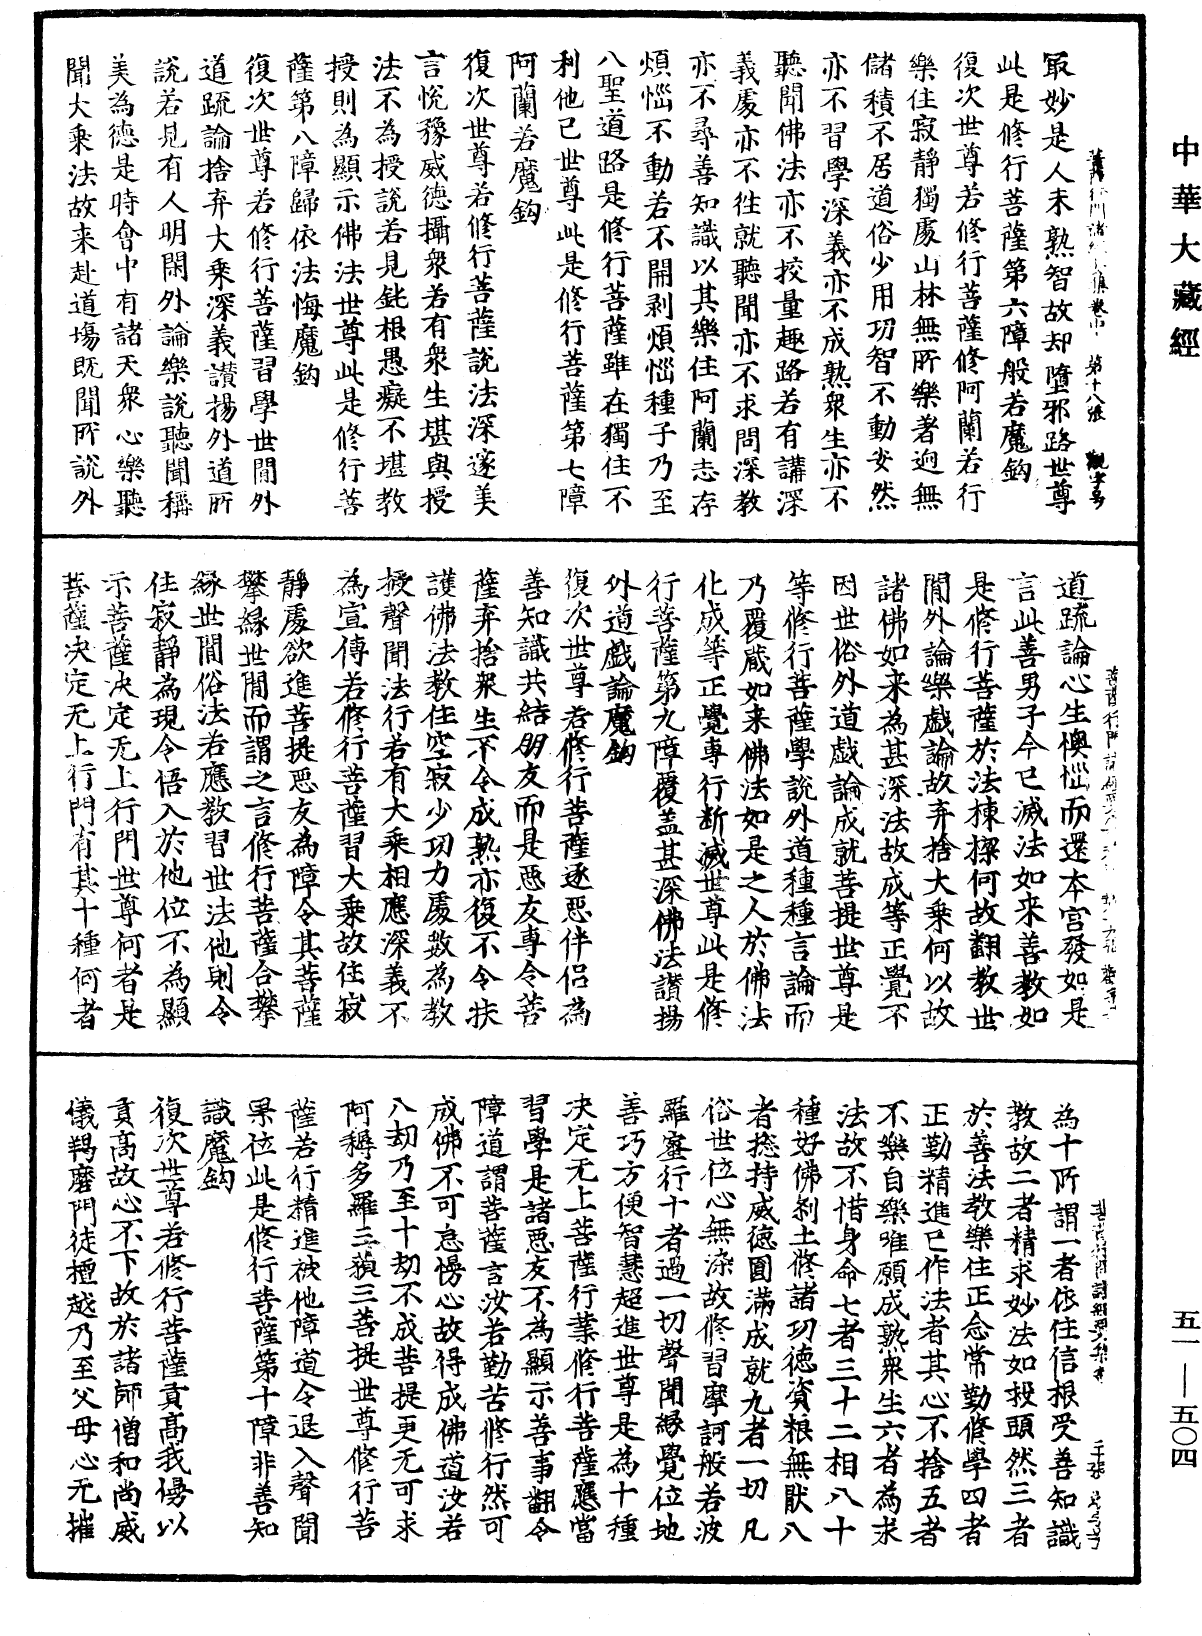 中華大藏經
五一—五〇四
最妙是人未熟智故却墮邪路世尊
此是修行菩薩第六障般若魔鈎
復次世尊若修行菩薩修阿蘭若行
樂住寂靜獨處山林無所樂著逈無
儲積不居道俗少用功智不動安然
亦不習學深義亦不成熟衆生亦不
聽聞佛法亦不挍量趣路若有講深
義處亦不徃就聽聞亦不求問深教
亦不尋善知識以其樂住阿蘭志存
煩惱不動若不開剥煩惱種子乃至
八聖道路是修行菩薩雖在獨住不
利他已世尊此是修行菩薩第七障
阿蘭若魔鈎
復次世尊若修行菩薩說法深邃美
言悅豫威德攝衆若有衆生堪與授
法不為授說若見鈍根愚癡不堪教
授則為顯示佛法世尊此是修行菩
薩第八障歸依法悔魔鈎
復次世尊若修行菩薩習學世間外
道䟽論捨弃大乘深義讃揚外道所
說若見有人明閑外論樂說聽聞稱
美為德是時會中有諸天衆心樂聽
聞大乘法故来赴道塲既聞所說外
道䟽論心生懊惱而還本宮發如是
言此善男子今已滅法如来善教如
是修行菩薩於法棟擇何故翻教世
間外論樂戲論故弃捨大乘何以故
諸佛如来為甚深法故成等正覺不
因世俗外道戲論成就菩提世尊是
等修行菩薩學說外道種種言論而
乃覆蔵如来佛法如是之人於佛法
化成等正覺專行断滅世尊此是修
行菩薩第九障覆盖甚深佛法讃揚
外道戲論魔鈎
復次世尊若修行菩薩逐惡伴侣為
善知識共結朋友而是惡友專令菩
薩弃捨衆生不令成熟亦復不令扶
護佛法教住空寂少功力處數為教
授聲聞法行若有大乘相應深義不
為宣傳若修行菩薩習大乘故住寂
靜處欲進菩提惡友為障令其菩薩
攀縁世間而謂之言修行菩薩合攀
縁世間俗法若應教習世法他則令
住寂靜為現令悟入於他位不為顯
示菩薩决定无上行門世尊何者是
菩薩决定无上行門有其十種何者
為十所謂一者依住信根受善知識
教故二者精求妙法如投頭然三者
於善法教樂住正念常勤修學四者
正勤精進已作法者其心不捨五者
不樂自樂唯願成熟衆生六者為求
法故不惜身命七者三十二相八十
種好佛剎土修諸功德資粮無猒八
者捴持威德圓滿成就九者一切凡
俗世位心無染故修習摩訶般若波
羅蜜行十者過一切聲聞縁覺位地
善巧方便智慧超進世尊是為十種
决定无上菩薩行業修行菩薩應當
習學是諸惡友不為顯示善事翻令
障道謂菩薩言汝若勤苦修行然可
成佛不可怠慢心故得成佛道汝若
八劫乃至十劫不成菩提更无可求
阿耨多羅三藐三菩提世尊修行菩
薩若行精進被他障道令退入聲聞
果位此是修行菩薩第十障非善知
識魔鈎
復次世尊若修行菩薩貢高我慢以
貢高故心不下故於諸師僧和尚威
儀羯磨門徒檀越乃至父母心无摧